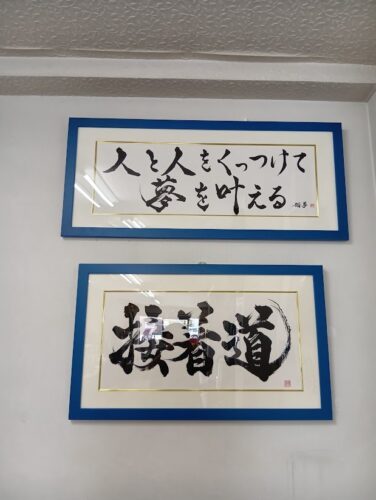 人と人をくっつけて
夢を叶える
接着道